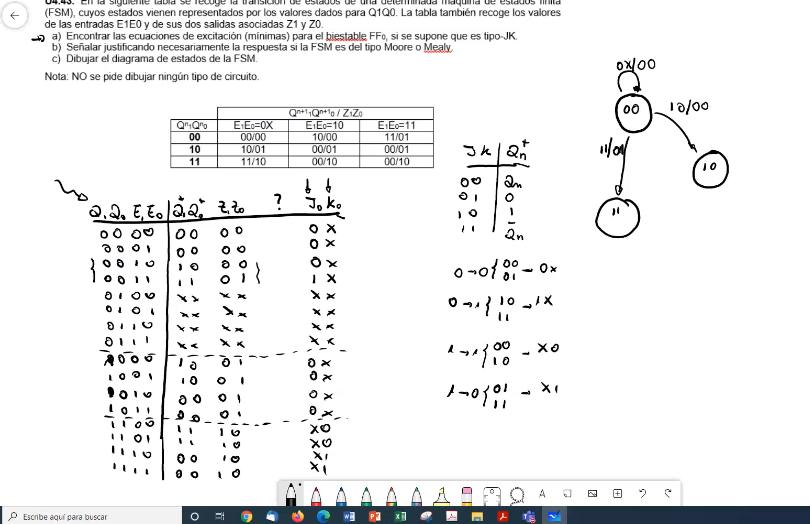 04.43. En la siguiente tabla se recoge la transición de estados de una determinada máquina de estados finita
(FSM), cuyos estados vienen representados por los valores dados para Q1Q0. La tabla también recoge los valores
de las entradas E1E0 y de sus dos salidas asociadas Z1 y Z0.
a) Encontrar las ecuaciones de excitación (mínimas) para el biestable FF0, si se supone que es tipo-JK.
b) Señalar justificando necesariamente la respuesta si la FSM es del tipo Moore o Mealy.
c) Dibujar el diagrama de estados de la FSM.
Nota: NO se pide dibujar ningún tipo de circuito.
Qn+1 1Qn+1 0 / Z1Z0
Qn1Qn0 E1E0=0X E1E0=10 E1E0=11
00 00/00 10/00 11/01
10 10/01 00/01 00/01
11 11/10 00/10 00/10
Q1 Q0 E1 E0 Q1+ Q0+ Z1 Z0 ? J0 K0
0 0 0 0 0 0 0 0 0 X
0 0 0 1 0 0 0 0 0 X
0 0 1 0 1 0 0 0 0 X
0 0 1 1 1 1 0 1 1 X
0 1 0 0 X X X X X X
0 1 0 1 X X X X X X
0 1 1 0 X X X X X X
0 1 1 1 X X X X X X
1 0 0 0 1 0 0 1 0 X
1 0 0 1 1 0 0 1 0 X
1 0 1 0 0 0 0 1 0 X
1 0 1 1 0 0 0 1 0 X
1 1 0 0 1 1 1 0 X 0
1 1 0 1 1 1 1 0 X 0
1 1 1 0 0 0 1 0 X 1
1 1 1 1 0 0 1 0 X 1
J K Qn+
0 0 Qn
0 1 0
1 0 1
1 1 Q̄n
0→0 { 00 01 - 0X
0→1 { 10 11 → 1X
1→1 { 00 10 - X0
1→0 { 01 11 - X1
0X/00
00
10/00
11/01
10
11
A
Escribe aquí para buscar